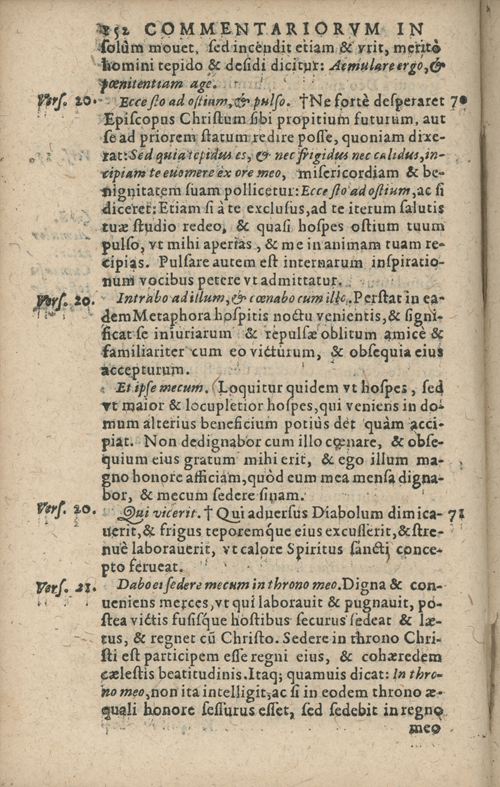 152 COMMENTARIORVM IN
solùm mouet, sed incendit etiam & vrit, meritò
homini tepido & desidi dicitur: Aemulare ergo, &
pœnitentiam age.
Vers. 20. Ecce sto ad ostium, & pulso. †Ne fortè desperaret 70
Episcopus Christum sibi propitium futurum, aut
se ad priorem statum redire posse, quoniam dixe-
rat: Sed quia tepidus es, & nec frigidus nec calidus, in-
cipiam te euomere ex ore meo, misericordiam & be-
nignitatem suam pollicetur: Ecce sto ad ostium, ac si
diceret: Etiam si à te exclusus, ad te iterum salutis
tuæ studio redeo, & quasi hospes ostium tuum
pulso, vt mihi aperias, & me in animam tuam re-
cipias. Pulsare autem est internarum inspiratio-
num vocibus petere vt admittatur.
Vers. 20. Intrabo ad illum, & cœnabo cum illo. Perstat in ea-
dem Metaphora hospitis noctu venientis, & signi-
ficat se iniuriarum & repulsæ oblitum amicè &
familiariter cum eo victurum, & obsequia eius
accepturum.
Et ipse mecum. (Loquitur quidem vt hospes, sed
vt maior & locupletior hospes, qui veniens in do-
mum alterius beneficium potiùs det quàm acci-
piat. Non dedignabor cum illo cœnare, & obse-
quium eius gratum mihi erit, & ego illum ma-
gno honore afficiam, quòd eum mea mensa digna-
bor, & mecum sedere sinam.
Vers. 20. Qui vicerit. † Qui aduersus Diabolum dimica- 71
uerit, & frigus teporemque eius excusserit, & stre-
nuè laborauerit, vt calore Spiritus sancti conce-
pto ferueat.
Vers. 21. Dabo ei sedere mecum in throno meo. Digna & con-
ueniens merces, vt qui laborauit & pugnauit, po-
stea victis fusisque hostibus securus sedeat & læ-
tus, & regnet cū Christo. Sedere in throno Chri-
sti est participem esse regni eius, & cohæredem
cælestis beatitudinis. Itaq; quamuis dicat: In thro-
no meo, non ita intelligit, ac si in eodem throno æ-
quali honore sessurus esset, sed sedebit in regno
meo